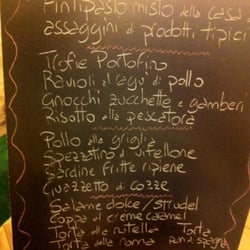 Antipasto misto della casa
assaggini di prodotti tipici
Trofie Portofino
Ravioli al ragu' di pollo
Gnocchi zucchette e gamberi
Risotto alla pescatora
Pollo alla griglia
Spezzatino di vitellone
Sardine fritte ripiene
Guazzetto di cozze
Salame dolce / Strudel
Coppa al creme caramel
Torta alla nutella Torta
Torta della nonna Pan di spagna